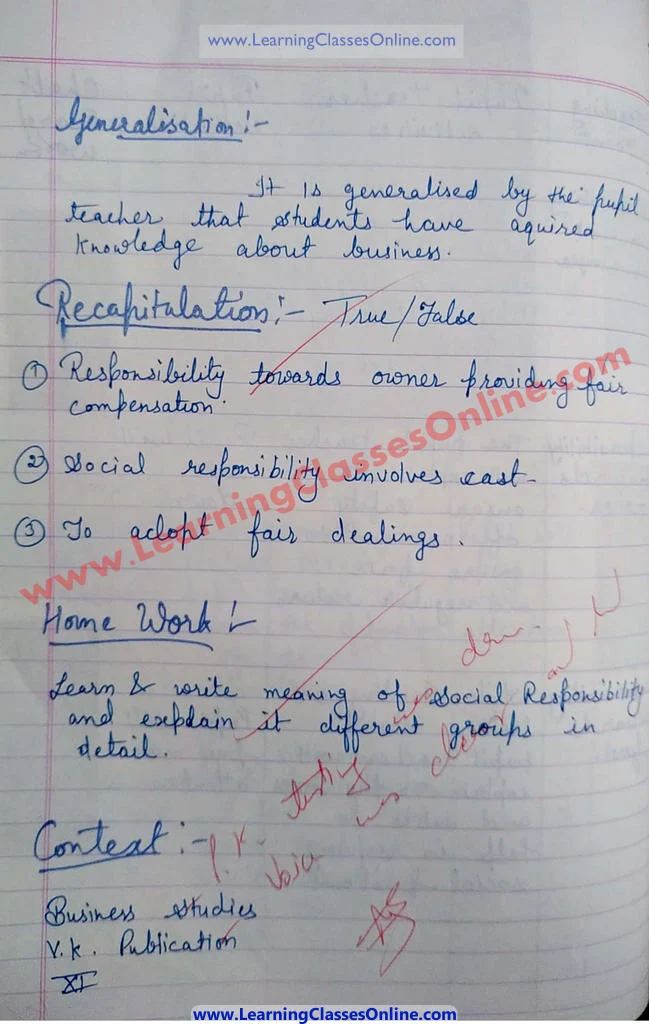 www.LearningClassesOnline.com
Generalisation :-
It is generalised by the pupil
teacher that students have aquired
knowledge about business.
Recapitulation :- True/False
① Responsibility towards owner providing fair
compensation.
② Social responsibility involves cast-
③ To adopt fair dealings.
www.LearningClassesOnline.com
Home Work :-
Learn & write meaning of social Responsibility
and explain it different groups in
detail.
testing
was
Context :-
P.K.
Voice
Business studies
V.K. Publication
XI
www.LearningClassesOnline.com